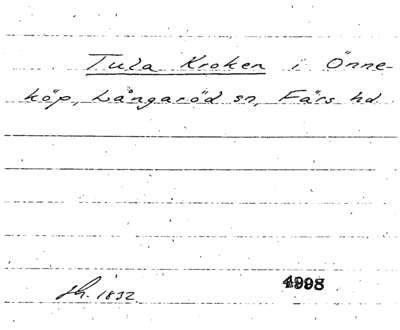 Tula Kroken i Önne-
köp, Långaröd sn, Färs hd.
sh. 1832
4998